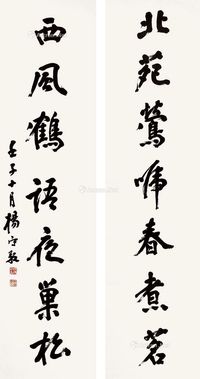 北苑鶯啼春煮茗
西風鶴語夜巢松
壬子十月楊守敬